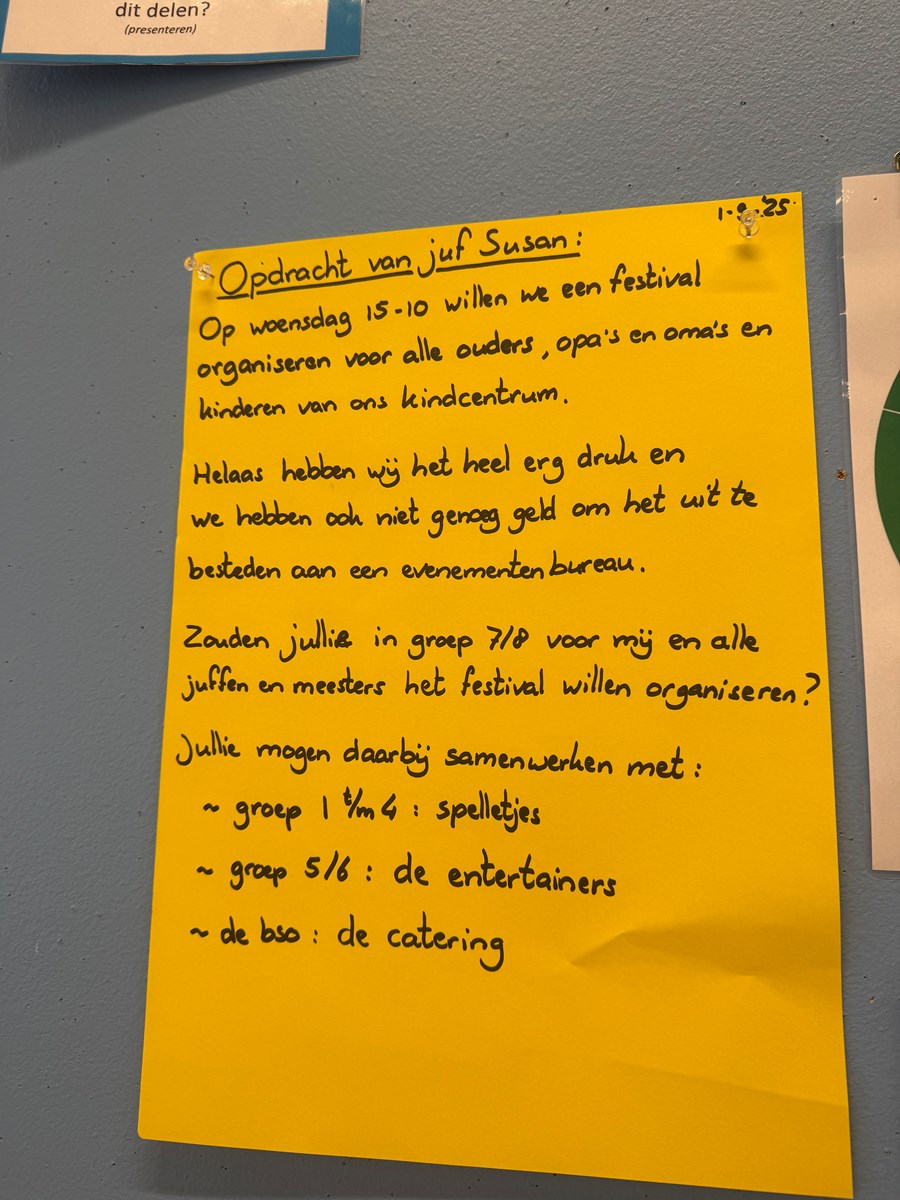 dit delen?
(presenteren)
1-9-'25
Opdracht van juf Susan:
Op woensdag 15-10 willen we een festival
organiseren voor alle ouders, opa's en oma's en
kinderen van ons kindcentrum.
Helaas hebben wij het heel erg druk en
we hebben ook niet genoeg geld om het uit te
besteden aan een evenementenbureau.
Zouden jullie in groep 7/8 voor mij en alle
juffen en meesters het festival willen organiseren?
Jullie mogen daarbij samenwerken met:
~ groep 1 t/m 4 : spelletjes
~ groep 5/6 : de entertainers
~ de bso : de catering